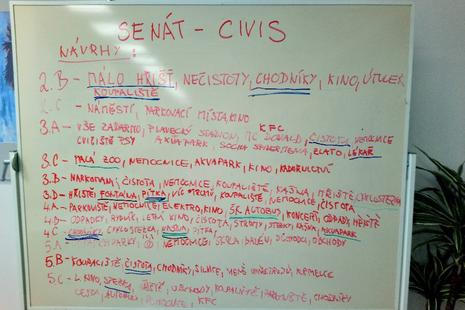 SENÁT - CIVIS
NÁVRHY:
2.B - MÁLO HŘIŠŤ, NEČISTOTY, CHODNÍKY, KINO, ÚTULEK
KOUPALIŠTĚ
2.C - NÁMĚSTÍ, PARKOVACÍ MÍSTA, KINO
KFC
3.A - VŠE ZADARMO, PLAVECKÝ STADION, MC DONALD, ČISTOTA, NEMOCNICE
CVIČIŠTĚ PSY AKVAPARK, SOCHA ZLATO, LÉKAŘ
3.C - MALÁ ZOO, NEMOCNICE, AKVAPARK, KINO, KADEŘNICTVÍ
3.B - NARKOMANI, ČISTOTA, NEMOCNICE, KOUPALIŠTĚ, KAŠNA, HŘIŠTĚ, CYKLOSTEZKA
3.D - HŘIŠTĚ, FONTÁNA, PÍTKA, VÍC KOUPALIŠTĚ, NEMOCNICE, ČISTOTA
4.A - PARKOVIŠTĚ, NEMOCNICE, ELEKTRO, KINO, ŠK. AUTOBUS, KONCERT, ODPADY, HŘIŠTĚ
4.D - ODPADKY, RYBNÍK, LETNÍ KINO, ČISTOTA, STROMY, KAŠNA, AKVAPARK
4.C - CHODNÍKY, CYKLOSTEZKA, KAŠNA, PÍTKA
5.A - NEMOCNICE, BALÓN, DŮCHODCI, OBCHODY
5.B - KOUPALIŠTĚ, ČISTOTA, CHODNÍKY, SILNICE, MÉNĚ
5.C - L. KINO, OBCHODY, KOUPALIŠTĚ, CHODNÍKY
AUTOBUS, KFC